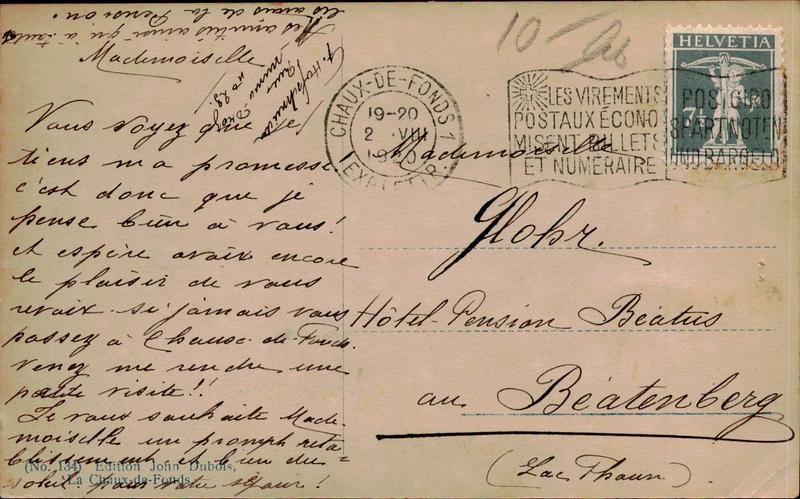 Mademoiselle
Vous voyez que je
tiens ma promesse
c'est donc que je
pense bien à vous!
et espère avoir encore
le plaisir de vous
revoir si jamais vous
passez à Chaux-de-Fonds.
venez me rendre une
petite visite!!
Je vous souhaite Made-
moiselle un prompt réta
blissement et bien du
soleil pour votre séjour!
Mes amitiés ainsi qu'à toutes
les amies de la Pension.
CHAUX-DE-FONDS 1
19-20
2 VIII
EXP. LETTR.
LES VIREMENTS
POSTAUX ÉCONO
MISENT BILLETS
ET NUMÉRAIRE
POSTGIRO
SPART NOTEN
UND BARGELD
HELVETIA
7½
Mademoiselle
Glohr.
Hôtel-Pension Béatus
au Béatenberg
(Lac Thoun).
(No. 134) Edition John Dubois,
La Chaux-de-Fonds